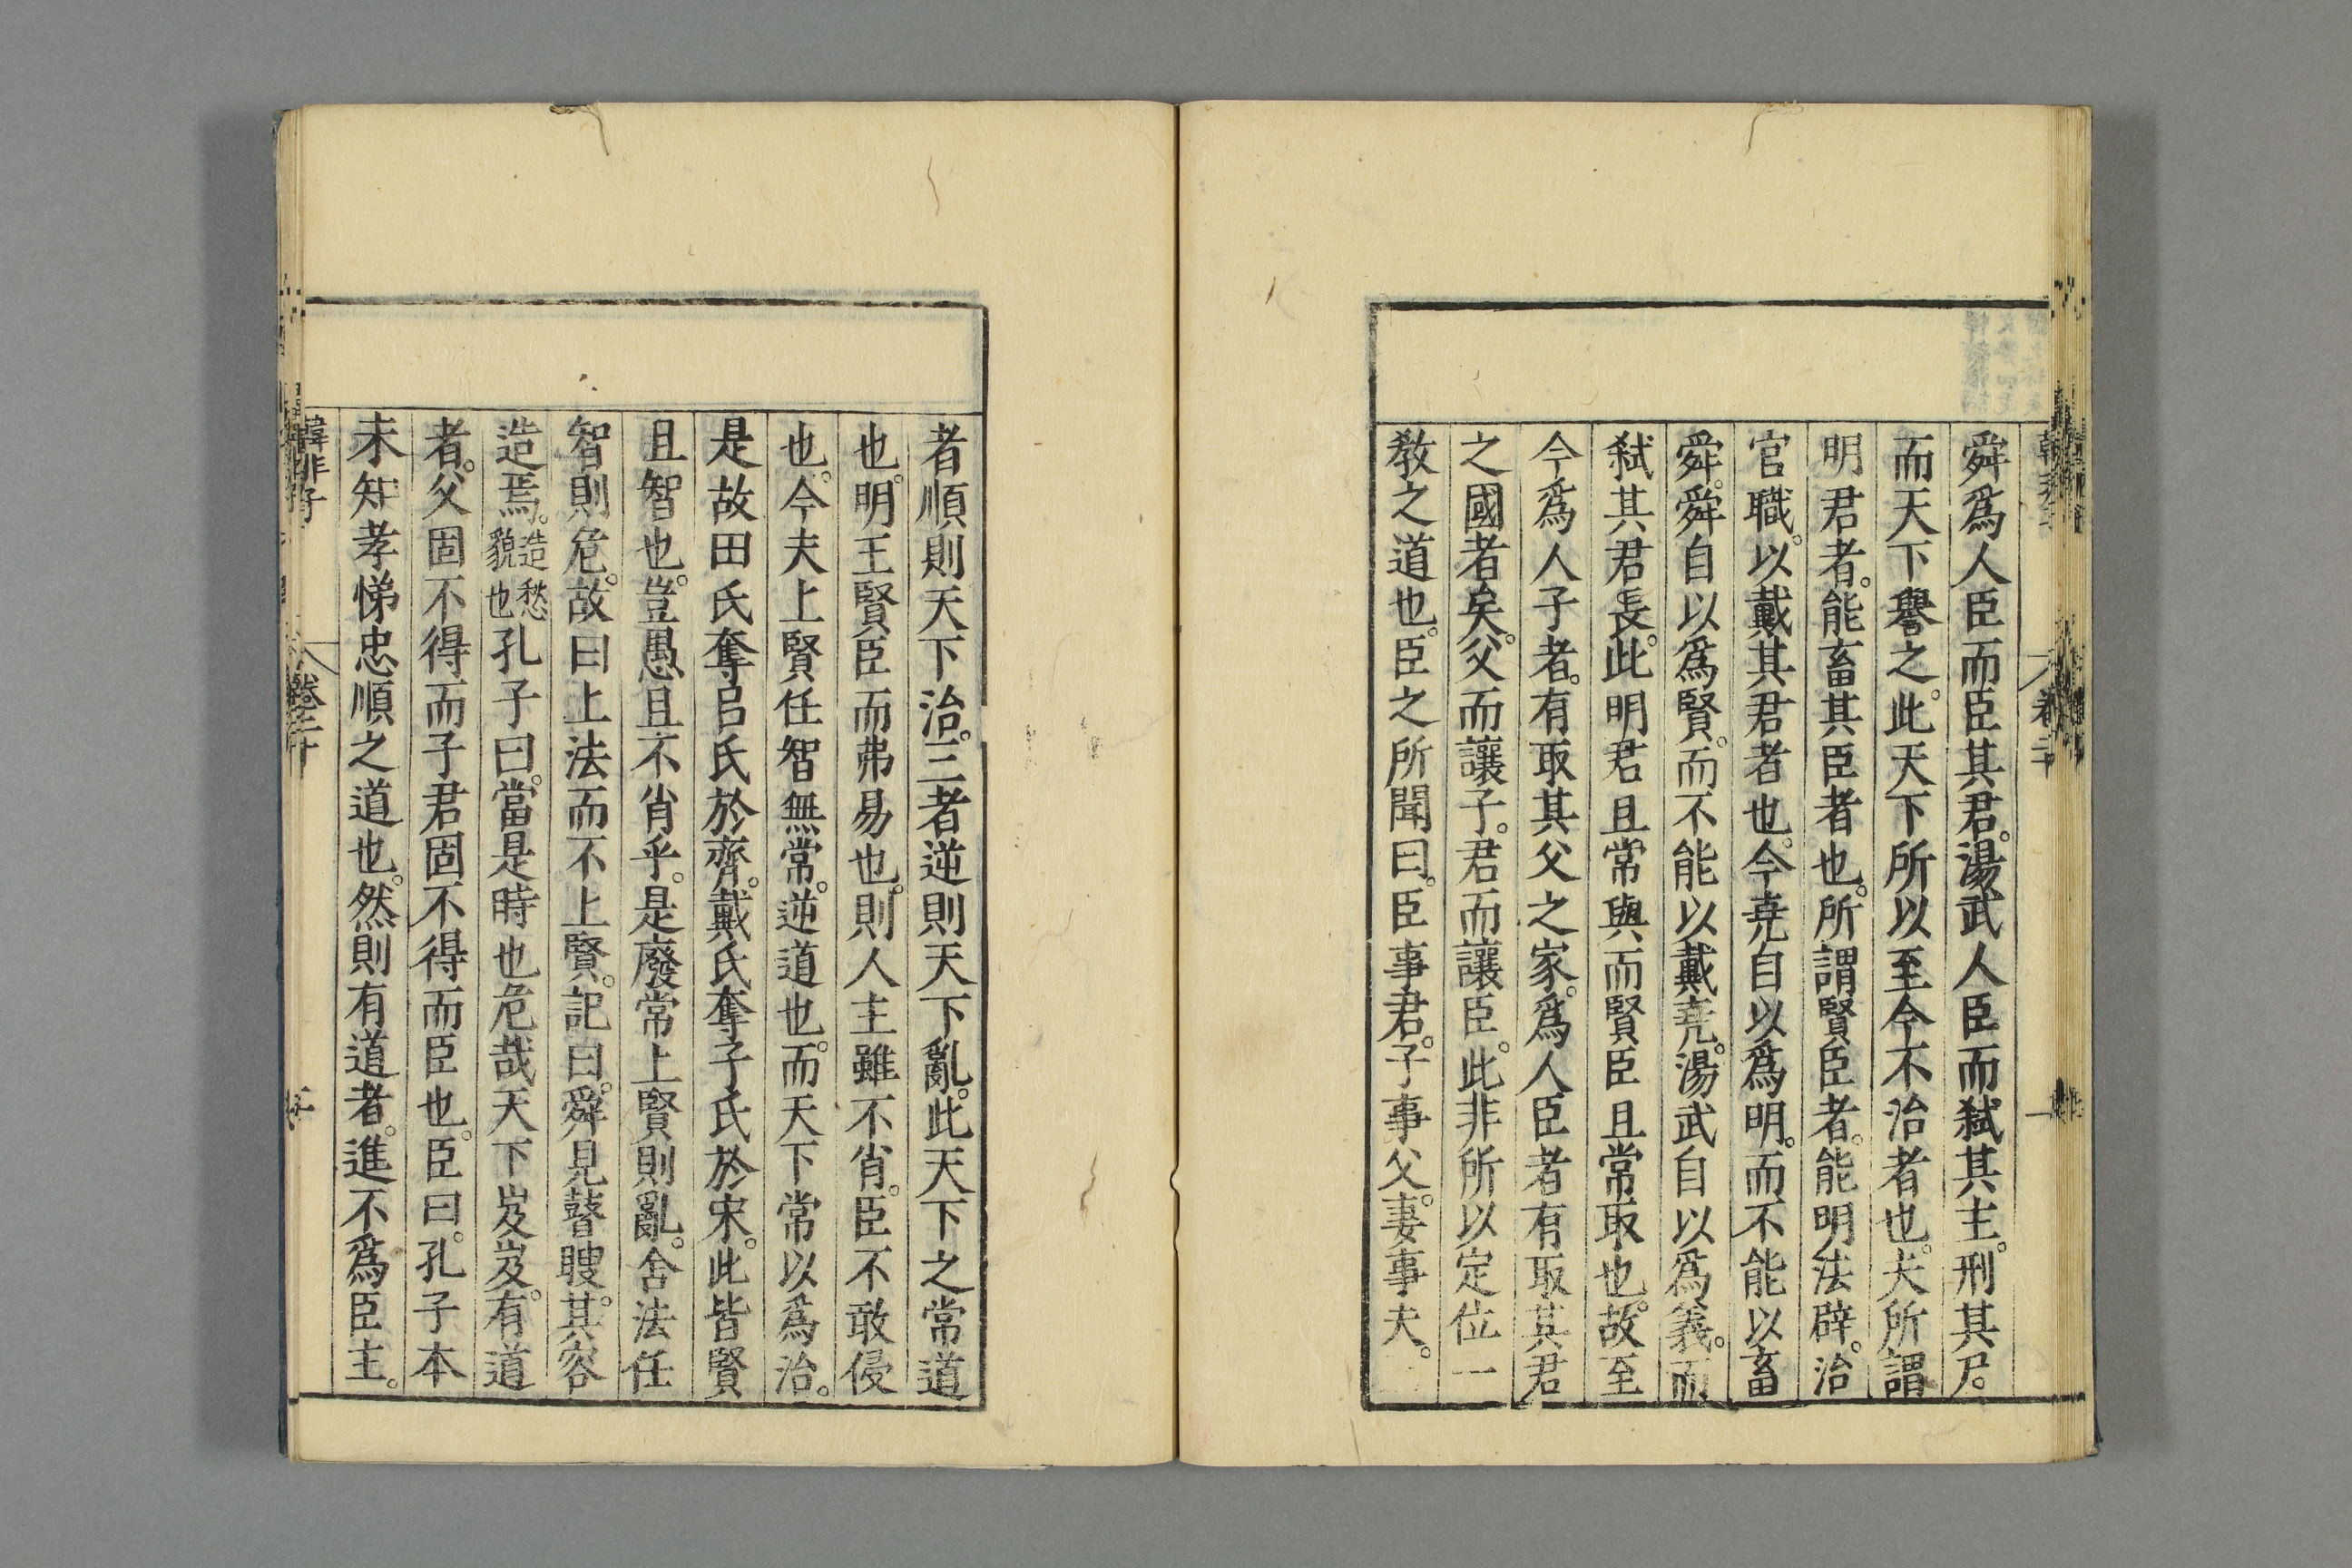 舜爲人臣而臣其君。湯武人臣而弑其主。刑其尸。
而天下譽之。此天下所以至今不治者也。夫所謂
明君者。能畜其臣者也。所謂賢臣者。能明法辟。治
官職。以戴其君者也。今堯自以爲明。而不能以畜
舜。舜自以爲賢。而不能以戴堯。湯武自以爲義。而
弑其君長。此明君且常與而賢臣且常取也。故至
今爲人子者。有取其父之家。爲人臣者有取其君
之國者矣。父而讓子。君而讓臣。此非所以定位一
教之道也。臣之所聞曰。臣事君。子事父。妻事夫。
者順則天下治。三者逆則天下亂。此天下之常道
也。明王賢臣而弗易也。則人主雖不肖。臣不敢侵
也。今夫上賢任智無常。逆道也。而天下常以爲治。
是故田氏奪呂氏於齊。戴氏奪子氏於宋。此皆賢
且智也。豈愚且不肖乎。是廢常上賢則亂。舍法任
智則危。故曰上法而不上賢。記曰。舜見瞽瞍。其容
造焉。造愁貌也孔子曰。當是時也危哉天下岌岌。有道
者。父固不得而子君固不得而臣也。臣曰。孔子本
未知孝悌忠順之道也。然則有道者。進不爲臣主。
韓非子 卷二十